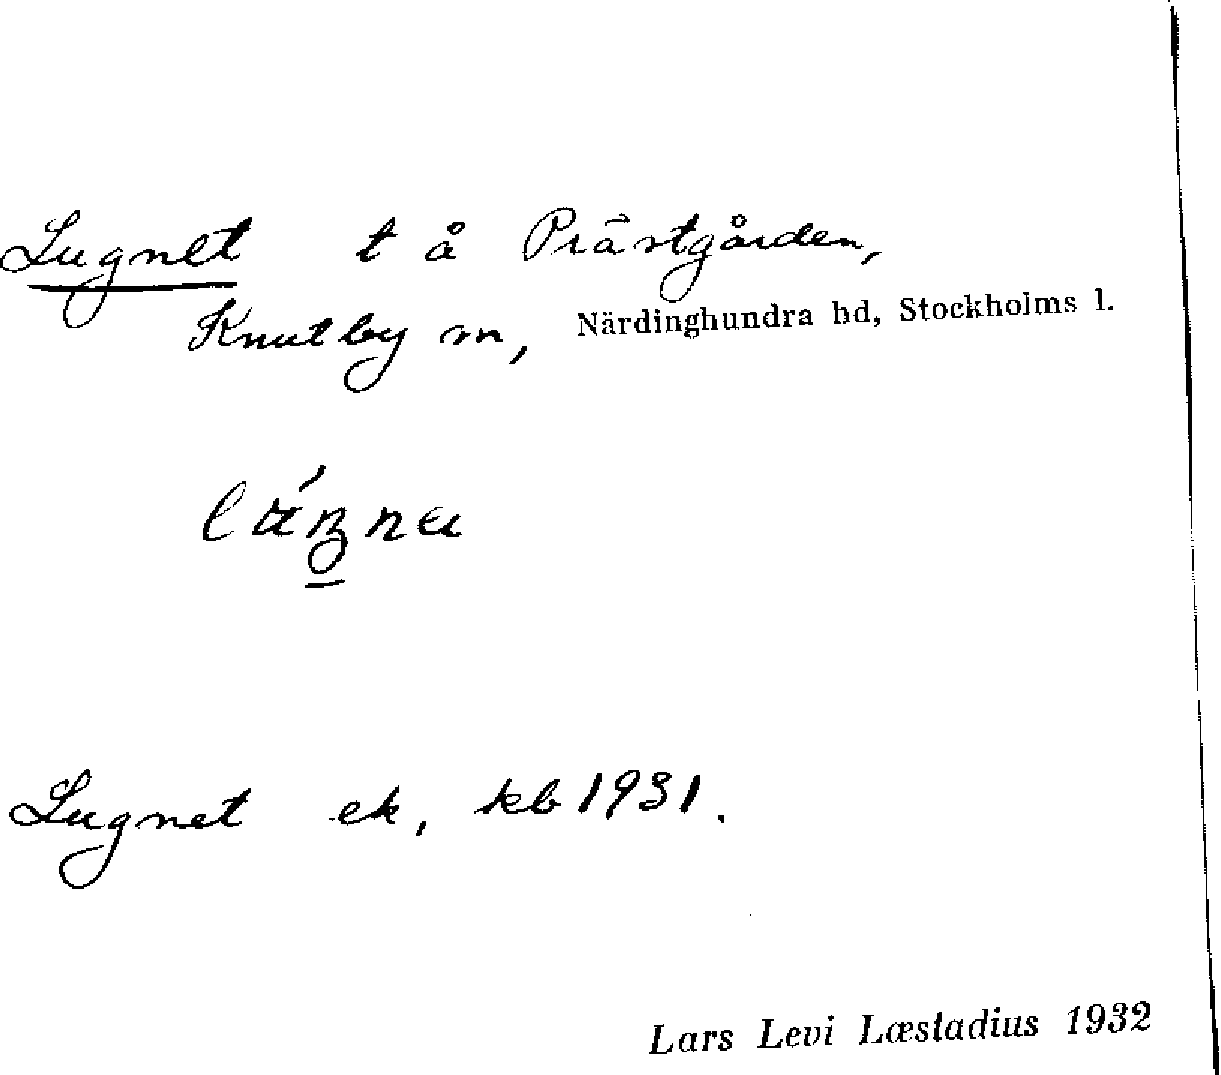 Lugnet t å Prästgården,
Knutby sn, Närdinghundra hd, Stockholms l.
Lugnet ek, kb 1931.
Lars Levi Læstadius 1932